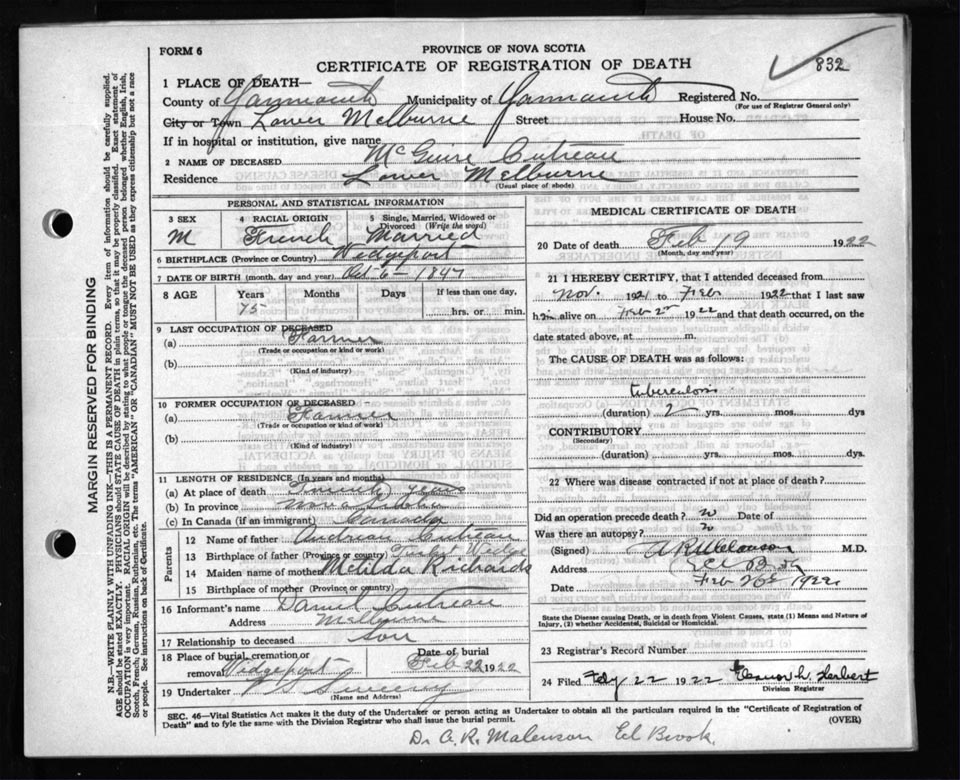 FORM 6
PROVINCE OF NOVA SCOTIA
CERTIFICATE OF REGISTRATION OF DEATH
832
1 PLACE OF DEATH—
County of Yarmouth Municipality of Yarmouth Registered No.
(For use of Registrar General only)
City or Town Lower Melburne Street House No.
If in hospital or institution, give name
2 NAME OF DECEASED McGuire Cutreau
Residence Lower Melburne
(Usual place of abode)
PERSONAL AND STATISTICAL INFORMATION
3 SEX
M
4 RACIAL ORIGIN
French
5 Single, Married, Widowed or Divorced (Write the word)
Married
6 BIRTHPLACE (Province or Country) Wedgeport
7 DATE OF BIRTH (month, day and year) Oct 6 - 1847
8 AGE Years Months Days If less than one day,
75 hrs. or min.
9 LAST OCCUPATION OF DECEASED
(a) Farmer
(Trade or occupation or kind or work)
(b)
(Kind of industry)
10 FORMER OCCUPATION OF DECEASED
(a) Farmer
(Trade or occupation or kind or work)
(b)
(Kind of industry)
11 LENGTH OF RESIDENCE (in Years and months)
(a) At place of death
(b) In province Nova Scotia
(c) In Canada (if an immigrant) Canada
Parents
12 Name of father Cutreau
13 Birthplace of father (Province or country) Tusket Wedge
14 Maiden name of mother Melilda Richards
15 Birthplace of mother (Province or country)
16 Informant's name Daniel Cutreau
Address Melbourne
17 Relationship to deceased Son
18 Place of burial, cremation or removal Wedgeport Date of burial Feb 22 1922
19 Undertaker Sweeny
(Name and Address)
MEDICAL CERTIFICATE OF DEATH
20 Date of death Feb 19 1922
(Month, day and year)
21 I HEREBY CERTIFY, that I attended deceased from
Nov. 1921 to Feb 1922 that I last saw
him alive on Feb 1922 and that death occurred, on the
date stated above, at m.
The CAUSE OF DEATH was as follows:
tuberculosis
(duration) 2 yrs. mos. dys
CONTRIBUTORY
(Secondary)
(duration) yrs. mos. dys
22 Where was disease contracted if not at place of death?
Did an operation precede death? no Date of
Was there an autopsy? no
(Signed) M.D.
Address
Date Feb 1922
State the Disease causing Death, or in Death from Violent Causes, state (1) Means and Nature of Injury, (2) whether Accidental, Suicidal or Homicidal.
23 Registrar's Record Number
24 Filed 22 1922 Herbert
Division Registrar
SEC. 46—Vital Statistics Act makes it the duty of the Undertaker or person acting as Undertaker to obtain all the particulars required in the "Certificate of Registration of
Death" and to fyle the same with the Division Registrar who shall issue the burial permit.
(OVER)
Dr A. R. Melanson Eel Brook.
MARGIN RESERVED FOR BINDING
N.B.—WRITE PLAINLY WITH UNFADING INK—THIS IS A PERMANENT RECORD. Every item of information should be carefully supplied.
AGE should be stated EXACTLY. PHYSICIANS should STATE CAUSE OF DEATH in plain terms, so that it may be properly classified. Exact statement of
OCCUPATION is very important. RACIAL ORIGIN will be described by stating to what people or tongue the deceased person belonged, whether English, Irish,
Scotch, French, German, Russian, Ruthenian, etc. The terms "AMERICAN" OR "CANADIAN" MUST NOT BE USED as they express citizenship but not a race
or people. See instructions on back of Certificate.